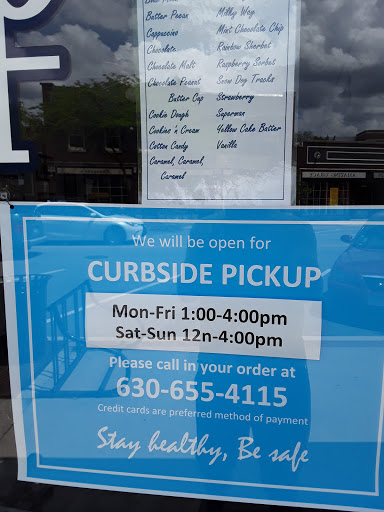 Butter Pecan
Cappuccino
Chocolate
Chocolate Malt
Chocolate Peanut
Butter Cup
Cookie Dough
Cookies 'n Cream
Cotton Candy
Caramel, Caramel,
Caramel
Milky Way
Mint Chocolate Chip
Rainbow Sherbet
Raspberry Sorbet
Snow Dog Tracks
Strawberry
Superman
Yellow Cake Batter
Vanilla
We will be open for
CURBSIDE PICKUP
Mon-Fri 1:00-4:00pm
Sat-Sun 12n-4:00pm
Please call in your order at
630-655-4115
Credit cards are preferred method of payment
Stay healthy, Be safe